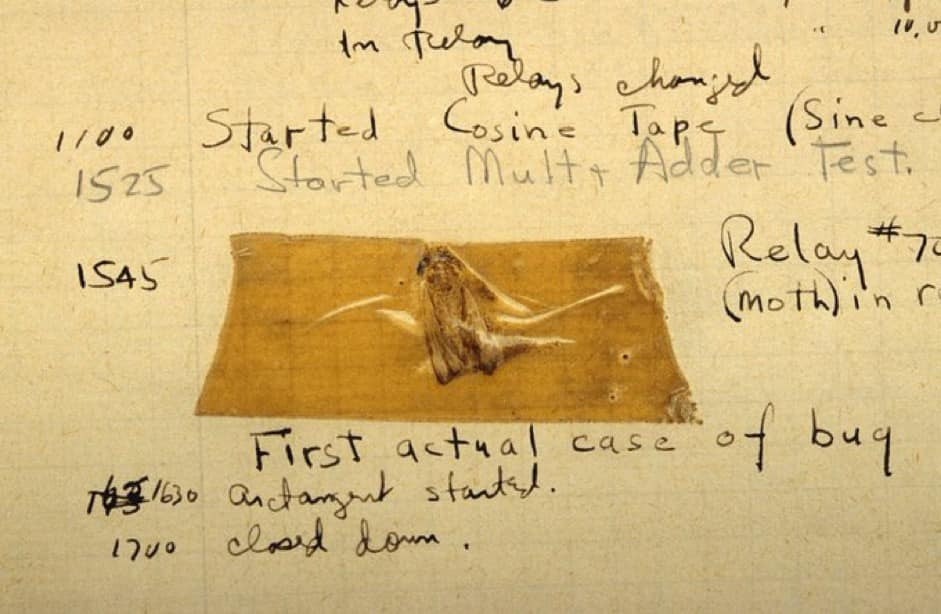 In Relay " 10,0
Relays changed
1100 Started Cosine Tape (Sine c
1525 Started Mult + Adder Test.
1545 Relay #70
(moth) in r
First actual case of bug
1630 arctangent started.
1700 closed down.